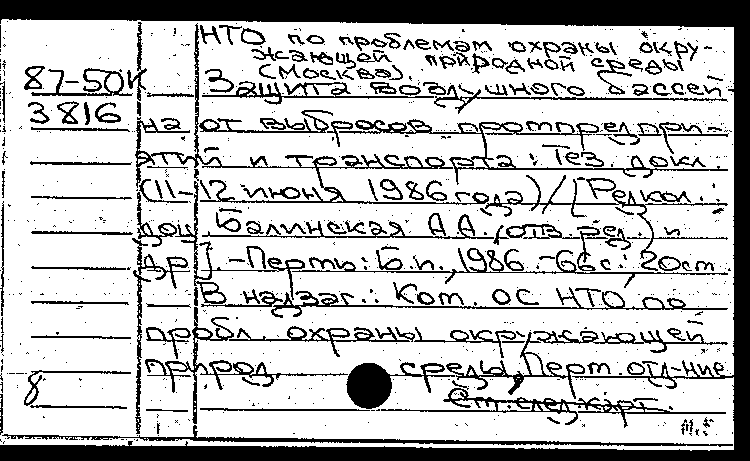 НТО по проблемам охраны окру-
жающей природной среды
(Москва).
87-50К Защита воздушного бассей-
3816 на от выбросов промпредпри-
ятий и транспорта: Тез. докл.
(11-12 июня 1986 года) / [Редкол.:
доц. Балинская А А. (отв. ред.) и
др]. - Пермь: Б.и., 1986. - 66 с.; 20 см
В надзаг.: Ком. ОС НТО по
пробл. охраны окружающей
природ. среды, Перм. отд-ние
8 См. след. карт.